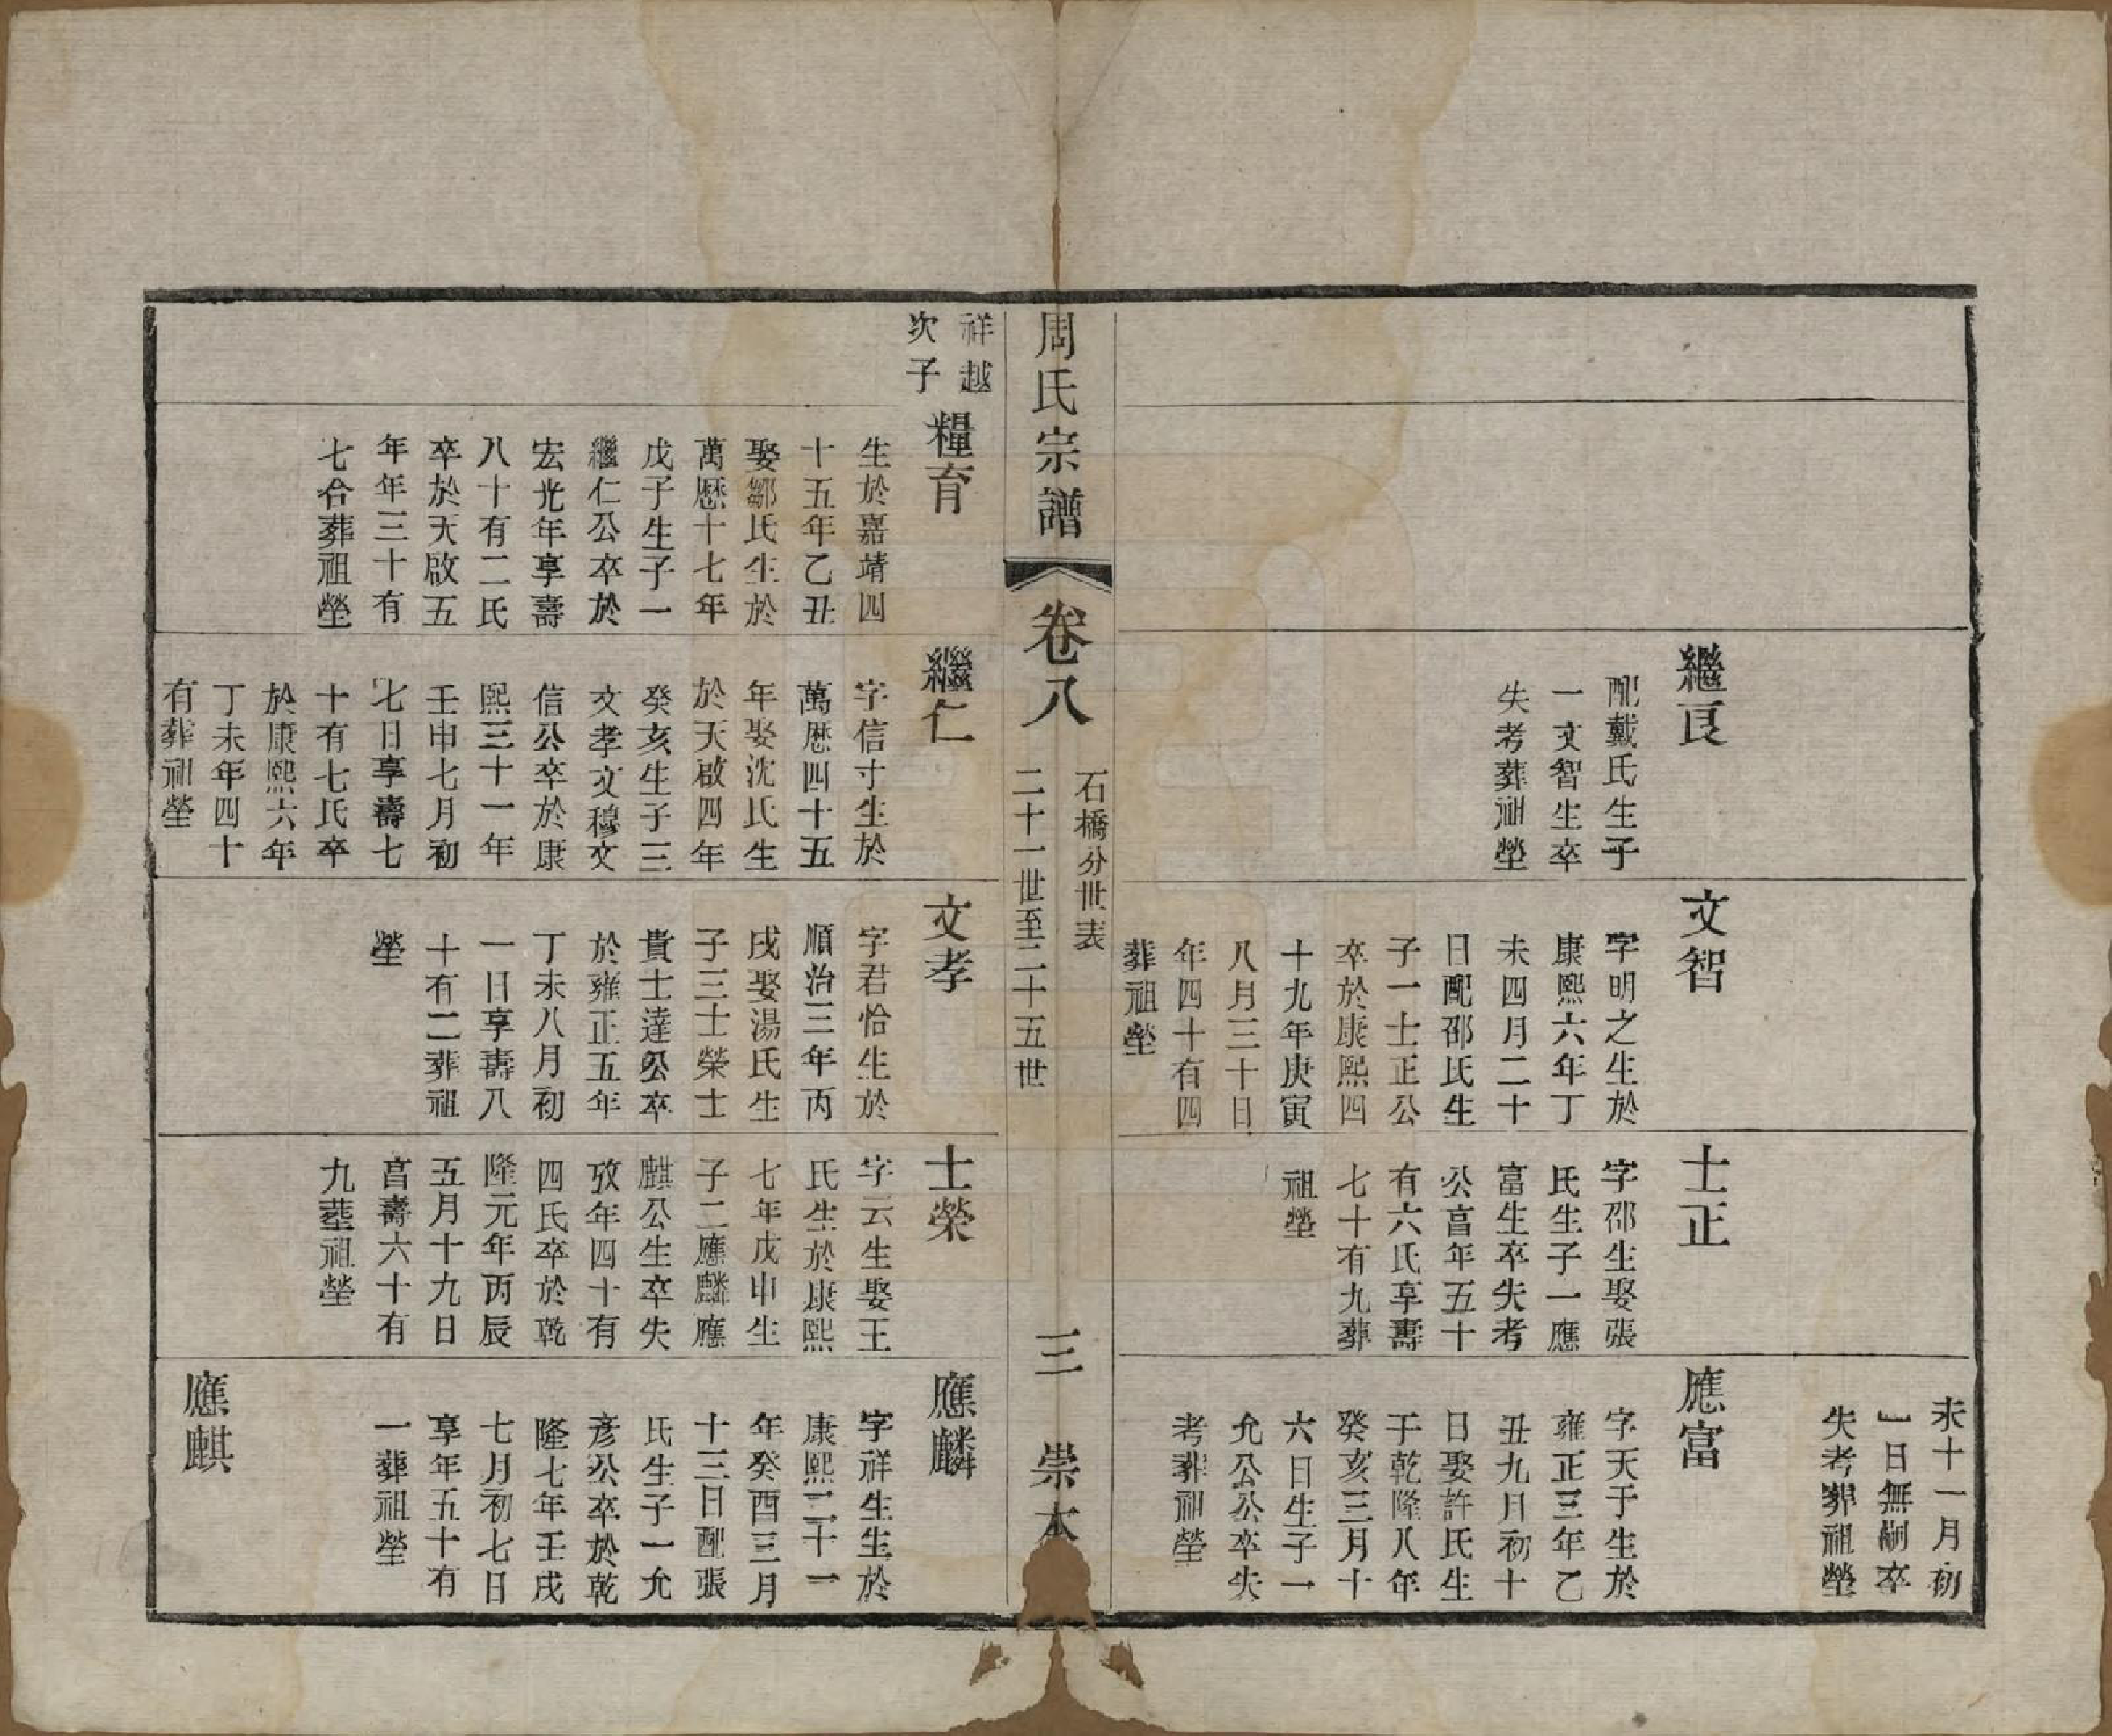 繼良
配戴氏生子
一文智生卒
失考葬祖塋
文智
字明之生於
康熙六年丁
未四月二十
日配邵氏生
子一士正公
卒於康熙四
十九年庚寅
八月三十日
年四十有四
葬祖塋
士正
字邵生娶張
氏生子一應
富生卒失考
公亯年五十
有六氏享壽
七十有九葬
祖塋
未十一月初
一日無嗣卒
失考葬祖塋
應富
字天于生於
雍正三年乙
丑九月初十
日娶許氏生
于乾隆八年
癸亥三月十
六日生子一
允公公卒失
考葬祖塋
周氏宗譜
卷八
石橋分世表
二十一世至二十五世
三
崇本
祥越
次子
糧育
生於嘉靖四
十五年乙丑
娶鄒氏生於
萬厯十七年
戊子生子一
繼仁公卒於
宏光年享壽
八十有二氏
卒於天啟五
年年三十有
七合葬祖塋
繼仁
字信寸生於
萬厯四十五
年娶沈氏生
於天啟四年
癸亥生子三
文孝文穆文
信公卒於康
熙三十一年
壬申七月初
七日享壽七
十有七氏卒
於康熙六年
丁未年四十
有葬祖塋
文孝
字君恰生於
順治三年丙
戌娶湯氏生
子三士榮士
貴士達公卒
於雍正五年
丁未八月初
一日享壽八
十有二葬祖
塋
士榮
字云生娶王
氏生於康熙
七年戊申生
子二應麟應
麒公生卒失
攷年四十有
四氏卒於乾
隆元年丙辰
五月十九日
亯壽六十有
九塟祖塋
應麟
字祥生生於
康熙三十二
年癸酉三月
十三日配張
氏生子一允
彥公卒於乾
隆七年壬戌
七月初七日
享年五十有
一葬祖塋
應麒